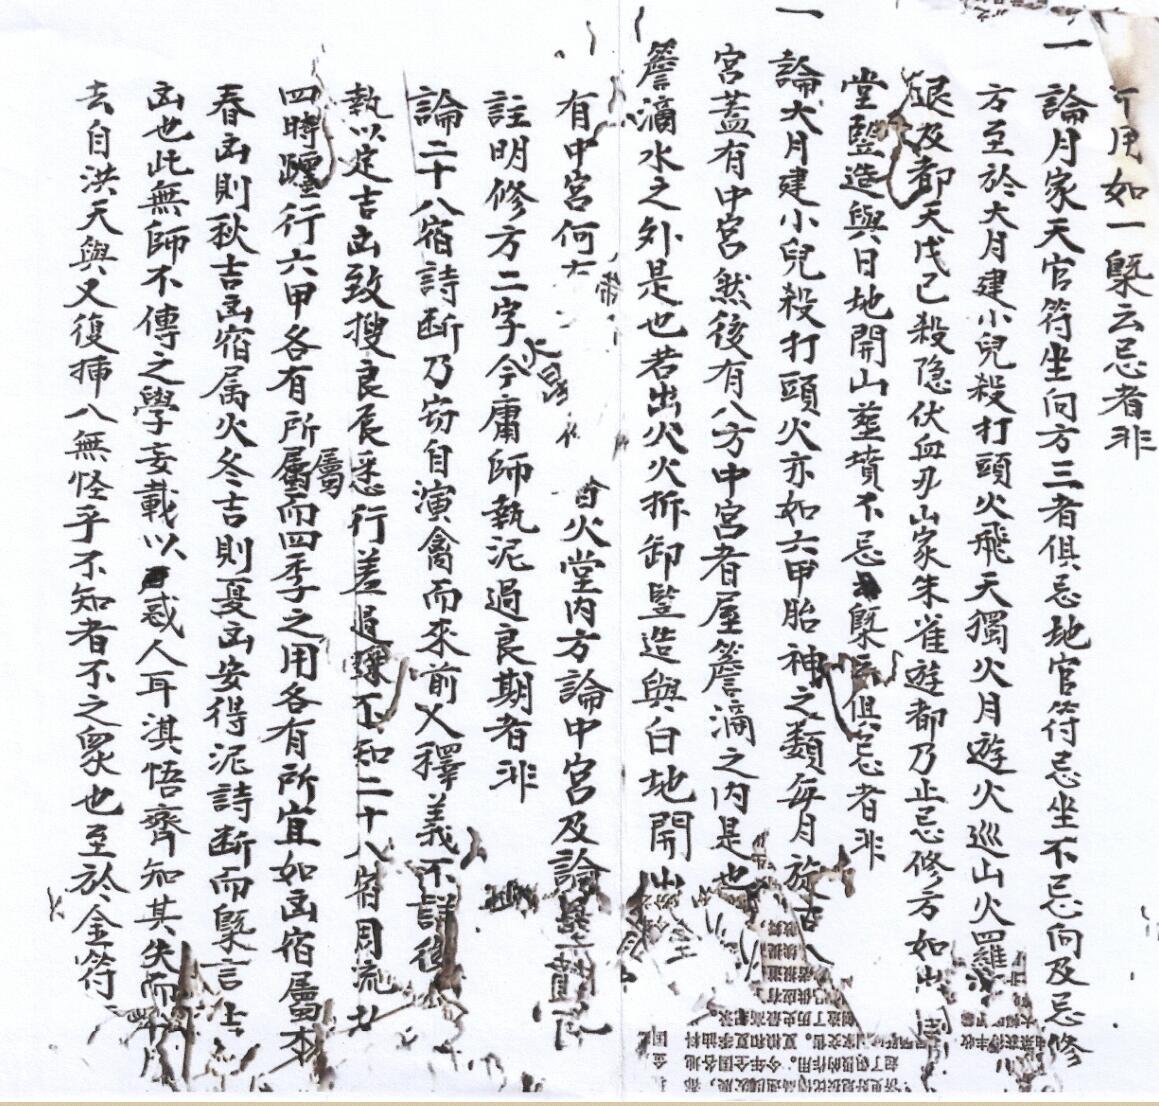 可用如一槩云忌者非
一論月家天官符坐向方三者俱忌地官符忌坐不忌向及忌修
方至於大月建小兒殺打頭火飛天獨火月遊火巡山火羅
退及都天戊己殺隐伏血刃山家朱雀遊都乃止忌修方如
堂豎造與日地開山塟墳不忌槩云俱忌者非
一論大月建小兒殺打頭火亦如六甲胎神之類每月旋古
宮蓋有中宮然後有八方中宮者屋簷滴之内是也
簷滴水之外是也若出火火拆卸豎造與白地開山
有中宮何
火堂内方論中宮及論
註明修方二字今庸師執泥過良期者非
火星
論二十八宿詩断乃窃自演禽而來前乂釋義不詳後
執以定吉凶致搜良辰悉行差過不知二十八宿周流
四時躔行六甲各有所屬而四季之用各有所宜如凶宿屬木
春凶則秋吉凶宿属火冬吉則夏凶安得泥詩断而槩言
凶也此無師不傳之學妄載以惑人耳淇悟齊知其失而
去自洪天與又復揷八無怪乎不知者不之衆也至於金符